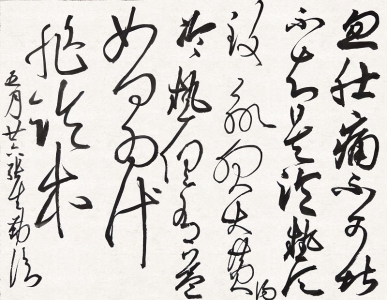 忽肚痛不可堪
不知是冷熱所
致欲服大黃湯
冷熱俱有益
如何為計
非臨床
五月廿六張